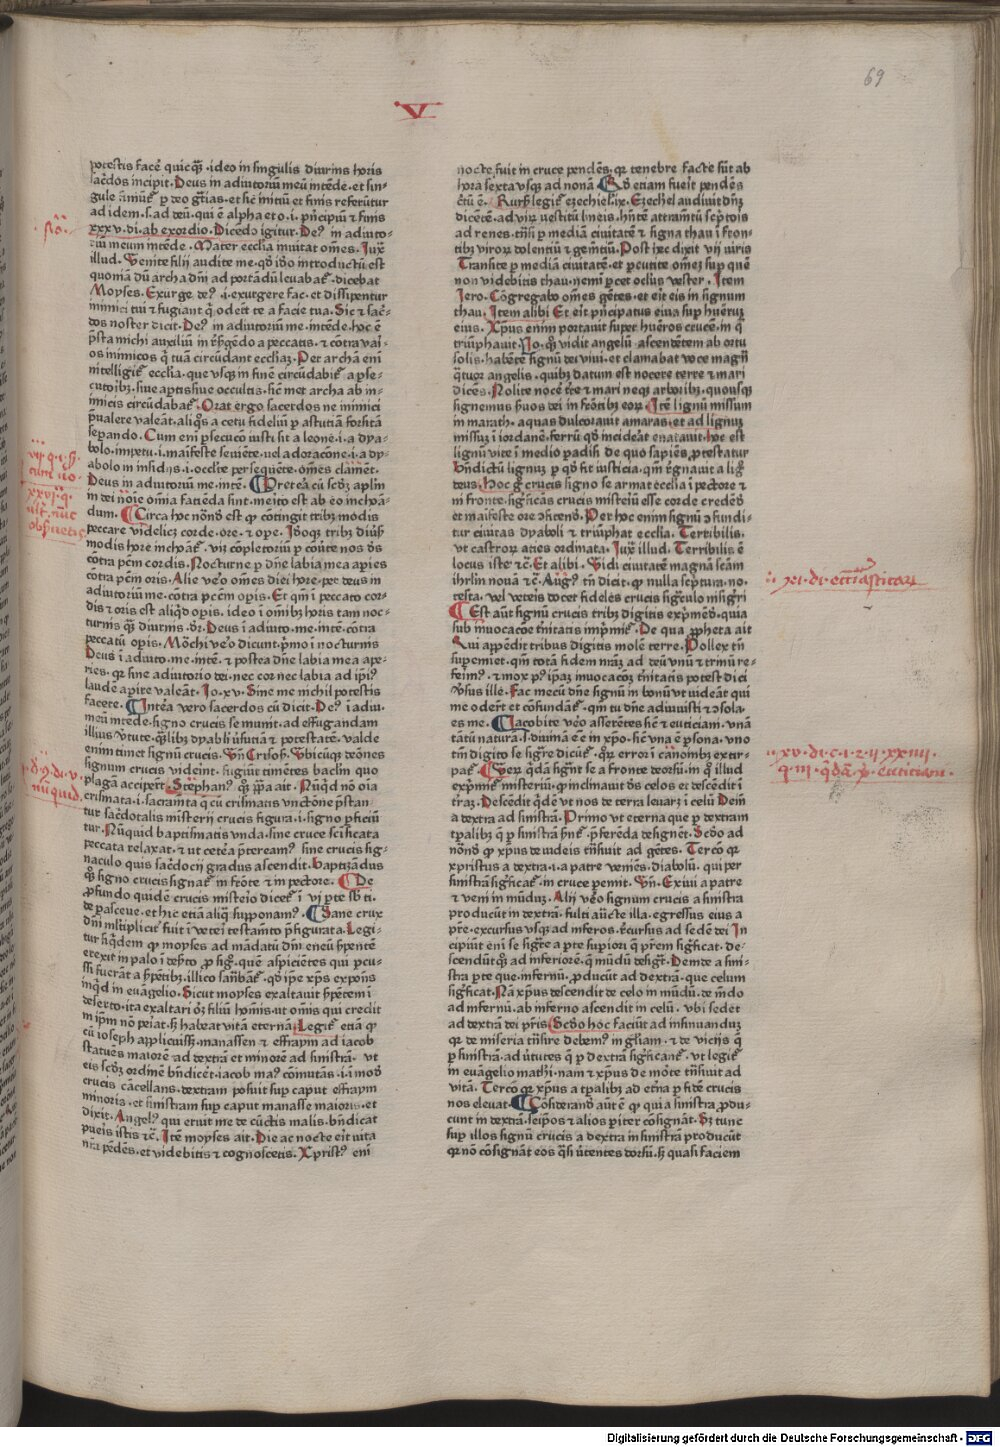 69
V
potestis facē quicq̄ȝ · ideo in singulis diurnis horis
sac̄dos incipit. Deus in adiutoriū meū intēde · et sin⸗
ad idem · s. ad deū · qui ē alpha et o · i · pn̄cipiū et finis
xxxv · di · ab exordio. Dicēdo igitur. De⁹ in adiuto⸗
riū meum intēde. Mater ecclīa inuitat om̄es. Iux̄
illud. Venite filij audite me · q̄d ido introductū est
quoniā dū archa dn̄i ad portādū leuabat̄ · dicebat
Moyses. Exurge de⁹ · i · exurgere fac · et dissipentur
inimici tui et fugiant q̄ oderūt te a facie tua. Sic et sac̄⸗
dos noster dicit. De⁹ in adiutoriū me · intēde · hoc ē
os inimicos q̄ tuā circūdant eccliaȝ. Per archā eni
intelligit̄ ecclīa · que vsqȝ in finē circūdabit̄ a p̄se⸗
cutoibȝ · siue aptis siue occultis · sic et archa ab in⸗
imicis circūdabat̄. Orat ergo sacerdos ne inimici
separando. Cum eni p̄secucō iusti sit a leone · i · a dya⸗
bolo · impetu · i · maifeste seuiēte · vel a dracone · i · a dy⸗
abolo in insidijs · i · occlte persequēte · om̄es clamēt.
Deus in adiutoriū me · intē. Preterea cū scd̄ȝ aplm̄
in dei noīe om̄ia facienda sint · merito est ab eo inchoā⸗
dum. Circa hoc nōnd est q̄ contingit tribȝ modis
peccare videlicȝ corde · ore · et ope. Idoqȝ tribȝ diūs̄
modis hore inchoāt̄. vȝ cōpletoriū p conūte nos ds̄
cōtra pēm cordis. Nocturne p dn̄e labia mea apies
cōtra pēm oris. Alie vero om̄es diei hore · per deus in
adiutoriū me · cōtra pc̄cm opis. Et qm̄ i peccato cor⸗
dis et oris est aliqd opis. ideo i om̄ibȝ horis tam noc⸗
turnis qȝ diurnis dr̄. Deus i adiuto · me · intē · cōtra
peccatū opis. Mōchi vero dicunt p̄mo i nocturnis
Deus i adiuto · me · intē · et postea dn̄e labia mea ape⸗
ries. qr sine adiutorio dei · nec cor nec labia ad ip̄i⁹
laudē apire valeāt. Io · xv. Sine me nichil potestis
facere. Intēa vero sacerdos cū dicit. De⁹ i adiu.
meū intēde · signo crucis se munit · ad effugandam
illius v̄tute · qȝlibȝ dyabli v̄sutiā et potestatē. valde
enim timet signū crucis. Vn̄ Crisos̄. Vbicūqȝ dēones
signum crucis videint · fugiūt timētes baclm̄ quo
plagā acciperūt. Stephan⁹ qȝ ip̄a ait. Nūqd nō oīa
crismata · i · sacram̄ta q̄ cū crismatis vnctione p̄stan
tur sac̄dotalis misterij crucis figura · i · signo p̄ficiū
tur. Nūquid baptismatis vnda · sine cruce scīficata
peccata relaxat. et ut ceteā p̄teream⁹ sine crucis sig⸗
naculo quis sac̄docij gradus ascendit. Baptizādus
qȝ signo crucis signat̄ in frōte et in pectore. De
p̄fundo quidē crucis misteio dicet̄ i vj pte sb̄ ti.
de pasceue · et hic etiā aliq̄ supponam⁹. Sane crux
dn̄i mltiplicit̄ fuit i vetei testam̄to p̄figurata. Legi⸗
tur sqdem q̄ moyses ad mādatū dn̄i eneū s̄pentē
erexit in palo i des̄to p sig. quē aspiciētes qui pcu⸗
ssi fuerāt a s̄pētibȝ · illico sanabāt̄. qd̄ ip̄e xp̄s expoīs
inqd in euāgelio. Sicut moyses exaltauit s̄pētem i
deserto · ita exaltari oȝ filiū hoīnis · ut omīs qui credit
in ip̄m nō peīat · sȝ habeat vitā eternā. Legit̄ etiā q̄
cū ioseph applicuissȝ · manassen et effraym ad iacob
statuēs maiorē ad dextrā et minorē ad sinistrā. vt
eis scd̄ȝ ordinē bn̄dicēt · iacob man⁹ cōmutās · i · in modū
crucis cācellans. dextram posuit sup caput effraym
minoris. et sinistram sup caput manasse maioris. et
dixit. Angel⁹ qui eruit me de cūctis malis · bn̄dicat
pueis istis et̄c. Itē moyses ait. Die ac nocte eīt uita
nr̄a pēdēs. et videbitis et cognoscetis. Xprist⁹ eni
nocte fuit in cruce pendēs. qr tenebre facte sūt ab
hora sexta vsqȝ ad nonā. Qd etiam fueīt pendēs
c̄tū ē. Rursȝ legit̄ ezechiel · ix. Ezechel audiuit dn̄ȝ
dicētē. ad virȝ vestitū lineis · hn̄tē attramētū sc̄ptois
ad renes. trāsi p mediā ciuitatē et signa thau i fron⸗
tibȝ virorȝ dolentiū et gemētiū. Post hec dixit vij uiris
Transite p mediā ciuitatē. et pcutite om̄eȝ sup quē
non videbitis thau. nemi pcet oclus vester. Item
Iero. Cōgregabo om̄es gētes. et eīt eis in signum
thau. Item alibi. Et eīt pn̄cipatus eius sup hūerūȝ
eius. Xpūs enim portauit super hūeros crucē. in q̄
triūphauit. Io. qȝ vidit angelū ascendētem ab ortu
solis · habētē signū dei viui. et clamabat voce magn̄
q̄tuor angelis. quibȝ datum est nocere terre et mari
dicēs. Nolite nocē tr̄e et mari neqȝ arboribȝ. quousqȝ
signemus s̄uos dei in frōtibȝ eorȝ. Itē lignū missum
in marath. aquas dulcorauit amaras. et ad lignuȝ
missuȝ i iordanē. ferrū qd̄ incideāt enatauit. hoc est
lignū vite i medio padisi de quo sapiēs protestatur
bn̄dictū lignuȝ p qd̄ fit iusticia. qm̄ regnauit a lig⁰
deus. Hoc g̊ crucis signo se armat ecclīa i pectore et
in fronte. sigficās crucis misteiū esse corde credēdū
et maifeste ore cōfitend̄. Per hoc enim signū cōfundi⸗
tur ciuitas dyaboli et triūphat ecclīa. Terribilis.
vt castrorȝ acies ordinata. Iux̄ illud. Terribilis ē
locus iste et̄c. Et alibi. Vidi ciuitatē magnā scām
ihrlm̄ nouā et̄c. Aug⁹ tn̄ dicit. q̄ nulla sc̄ptura. no.
testa. vel veteis docet fideles crucis sig̊culo insigīri
Est aūt signū crucis tribȝ digitis exp̄mēdū. quia
sub inuocacōe t̄nitatis imp̄mit̄. De qua pp̄heta ait
Qui appēdit tribus digitis molē terre. Pollex tn̄
supeīniet. qm̄ totā fidem nr̄aȝ ad deū vnū et trinū re⸗
v̄sus ille. Fac mecū dn̄e signū in bonū vt uideāt qui
me oderūt et cōfundāt̄. qm̄ tu dn̄e adiuuisti et cōsola⸗
es me. Iacobite vero asserētes sic ē euticiani. vnā
tātū naturā. s. diuinā eē in xp̄o. sic ē vna ē p̄sona. vno
tm̄ digito se sigre dicūt̄. qȝ error i canōnibȝ extir⸗
pat̄. Porȝ qdā signāt se a fronte deorsū. in q̄ illud
exp̄mit̄ misteriū. q̄ inclinauit ds̄ celos et descēdit i
traȝ. Descēdit qdē vt nos de terra leuarȝ i celū. Deīn
a dextra ad sinistrā. Primo ut eterna que p dextram
tp̄alibȝ q̄ p sinistrā sn̄t̄. p̄ferēda designēt. Scdo ad
nōnd̄ q̄ xpūs de iudeis trāsiuit ad gētes. Tercō qr
xpristus a dextra. i. a patre veniēs. diabolū. qui per
sinistrā sigficat̄. in cruce pemit. Vn̄. Exiui a patre
et veni in mūduȝ. Alij vero signum crucis a sinistra
producūt in dextrā. fulti aucte illa. egressus eius a
pr̄e. excursus vsqȝ ad inferos. recursus ad sedē dei. In
cipiūt eni se sigre a pte supiori q̄ pr̄em sigficat. de⸗
scendūtqȝ ad inferiorē. q̄ mūdū desigt̄. Deinde a sini⸗
stra pte que infernū. producūt ad dextrā. que celum
sigficat. Nā xpūs descendit de celo in mūdū. de mūdo
ad infernū. ab inferno ascendit in celū. vbi sedet
ad dextrā dei pr̄is. Scdo hoc faciūt ad insinuanduȝ
qr de miseria trāsire debem⁹ in gl̄iam. et de vicijs q̄
p sinistrā. ad v̄tutes q̄ p dextrā sigficant̄. vt legit̄
in euāgelio mathi. nam et xpūs de morte trāsiuit ad
vitā. Tercō qr xpūs a tp̄alibȝ ad et̄na p fidē crucis
nos eleuat. Cōsiderand̄ aūt ē q̄ qui a sinistra produ⸗
cunt in dextrā. seip̄os et alios pīter cōsignāt. Sȝ tunc
sup illos signū crucis a dextra in sinistrā producūt
qr nō cōsignāt eos qsi v̄tentes dorsū. sȝ quasi faciem
xxvj · q ·
ult · nūc
obseruetis
nūquid
xi · di · eccl̄iasticarȝ
xv · di · c · i · 2 · ij · xxiiij
q · iij · qdā · p · euticiani ·
Digitalisierung gefördert durch die Deutsche Forschungsgemeinschaft - DFG